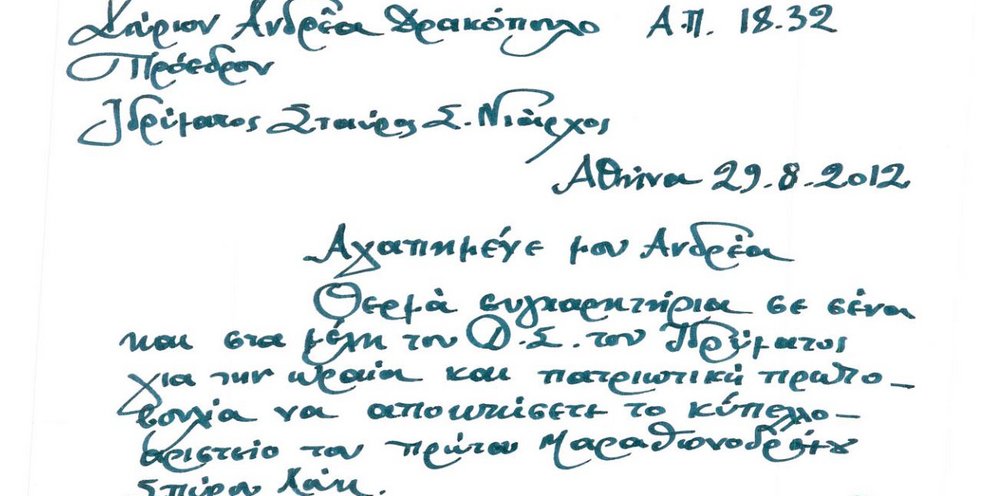 Κύριον Ανδρέα Δρακόπουλο Α.Π. 18.32
Πρόεδρον
Ιδρύματος Σταύρος Σ. Νιάρχος
Αθήνα 29.8.2012
Αγαπημένε μου Ανδρέα
Θερμά συγχαρητήρια σε σένα
και στα μέλη του Δ.Σ. του Ιδρύματος
για την ωραία και πατριωτική πρωτο-
βουλία να αποκτήσετε το κύπελλο-
αριστείο του πρώτου Μαραθωνοδρόμου
Σπύρου Λούη.